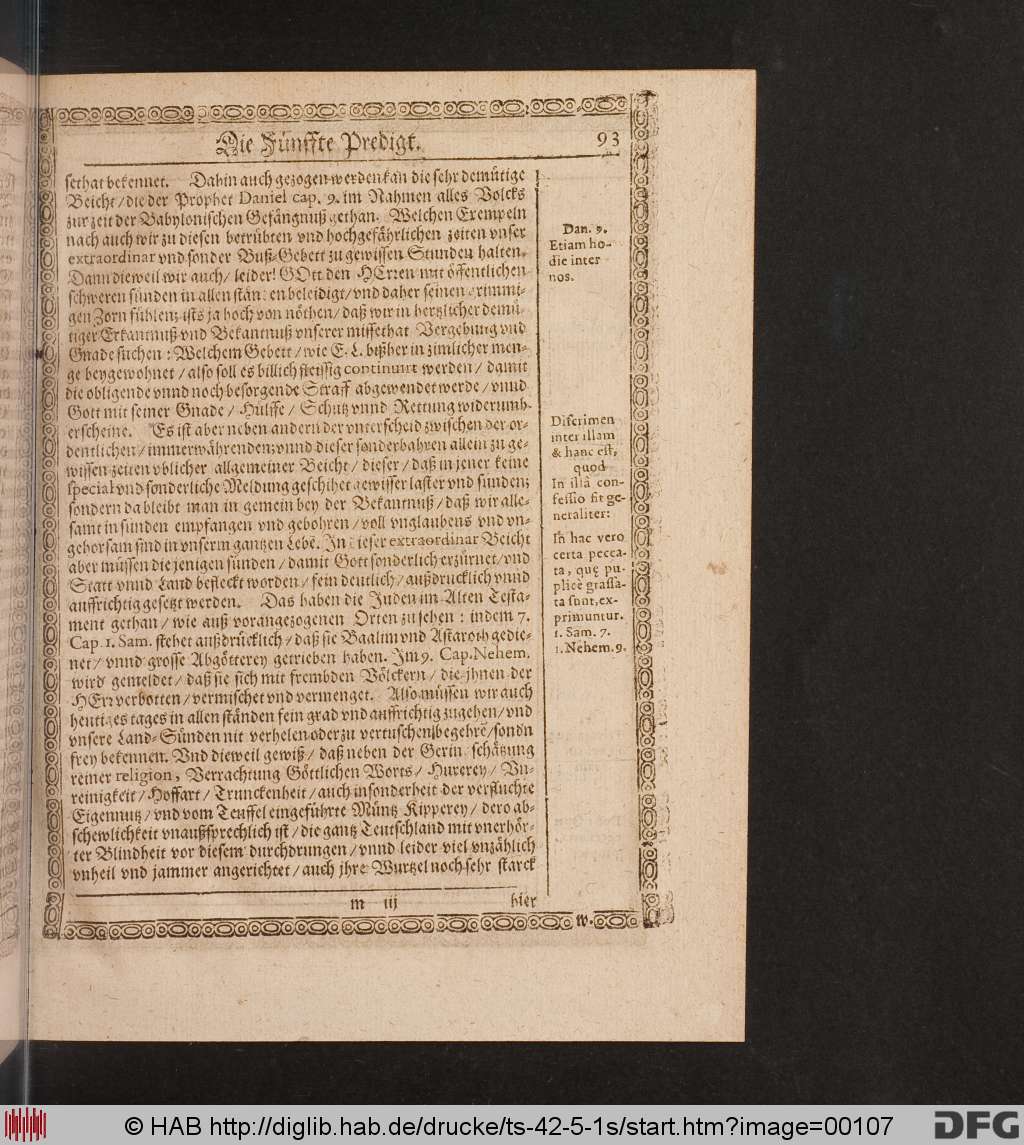 Die Fünffte Predigt.
93
sethat bekennet. Dahin auch gezogen werden kan die sehr demütige
Beicht / die der Prophet Daniel cap. 9. im Nahmen alles Volcks
zur zeit der Babylonischen Gefängnuß gethan. Welchen Exempeln
nach auch wir zu diesen betrübten vnd hochgefährlichen zeiten vnser
extraordinar vnd sonder Buß-Gebett zu gewissen Stunden halten.
Dann dieweil wir auch / leider! GOtt den HErren mit öffentlichen
schweren sünden in allen stän en beleidigt / vnd daher seinen grimmi-
gen Zorn fühlen; ists ja hoch von nöthen / daß wir in hertzlicher demü-
tiger Erkantnuß vnd Bekantnuß vnserer missethat Vergebung vnd
Gnade suchen : Welchem Gebett / wie E. L. bißher in zimlicher men-
ge beygewohnet / also soll es billich fleissig continuirt werden / damit
die obligende vnnd noch besorgende Straff abgewendet werde / vnnd
Gott mit seiner Gnade / Hülffe / Schutz vnnd Rettung widerumb
erscheine. Es ist aber neben andern der vnterscheid zwischen der or-
dentlichen / immerwährenden; vnnd dieser sonderbahren allein zu ge-
wissen zeiten vblicher allgemeiner Beicht / dieser / daß in jener keine
special vnd sonderliche Meldung geschihet gewisser laster vnd sünden;
sondern da bleibt man in gemein bey der Bekantnuß / daß wir alle-
samt in sünden empfangen vnd gebohren / voll vnglaubens vnd vn-
gehorsam sind in vnserm gantzen Lebē. In dieser extraordinar Beicht
aber müssen die jenigen sünden / damit Gott sonderlich erzürnet / vnd
Statt vnnd Land befleckt worden / fein deutlich / außdrucklich vnnd
auffrichtig gesetzt werden. Das haben die Juden im Alten Testa-
ment gethan / wie auß vorangezogenen Orten zu sehen : indem 7.
Cap. 1. Sam. stehet außdrücklich / daß sie Baalim vnd Astaroth gedie-
net / vnnd grosse Abgötterey getrieben haben. Im 9. Cap. Nehem.
wird gemeldet / daß sie sich mit frembden Völckern / die jhnen der
HErr verbotten / vermischet vnd vermenget. Also müssen wir auch
heutiges tages in allen ständen fein grad vnd auffrichtig zugehen / vnd
vnsere Land-Sünden nit verhelen oder zu vertuschen begehrē / sondn
frey bekennen. Vnd dieweil gewiß / daß neben der Gerin schätzung
reiner religion, Verrachtung Göttlichen Worts / Hurerey / Vn-
reinigkeit / Hoffart / Trunckenheit / auch insonderheit der verfluchte
Eigennutz / vnd vom Teuffel eingeführte Müntz Kipperey / dero ab-
schewlichkeit vnaußsprechlich ist / die gantz Teutschland mit vnerhör-
ter Blindheit vor diesem durchdrungen / vnnd leider viel vnzählich
vnheil vnd jammer angerichtet / auch jhre Wurtzel noch sehr starck
m iij
hier
w.
Dan. 9.
Etiam ho-
die inter
nos.
Discrimen
inter illam
& hanc est,
quod
In illâ con-
fessio fit ge-
neraliter:
In hac vero
certa pecca-
ta, quę pu-
plicè grassa-
ta sunt, ex-
primuntur.
1. Sam. 7.
1. Nehem. 9.
© HAB http://diglib.hab.de/drucke/ts-42-5-1s/start.htm?image=00107
DFG